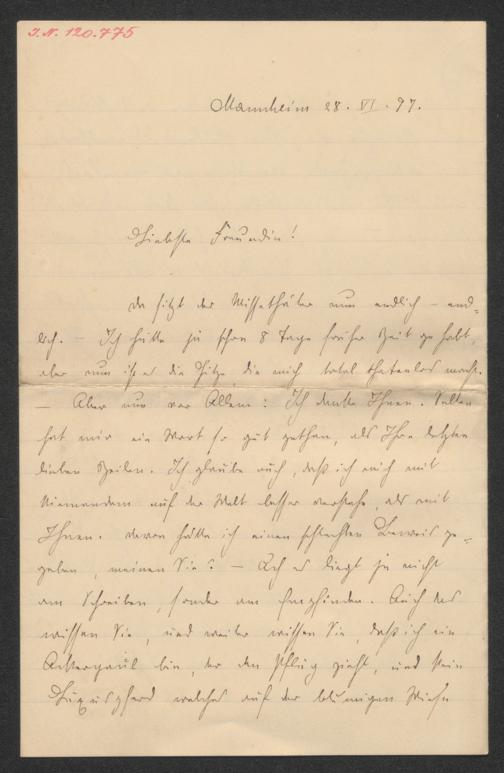 J.N. 120.775
Mannheim 28. VI. 97.
Liebste Freundin!
da sitzt der Missethäter nun endlich – end=
lich. – Ich hätte ja schon 8 Tage früher Zeit gehabt,
aber nun ist es die Hitze, die mich total thatenlos macht.
– Aber nun vor Allem: Ich danke Ihnen. Selten
hat mir ein Wort so gut gethan, als Ihre letzten
lieben Zeilen. Ich glaube auch, daß ich mich mit
Niemandem auf der Welt besser verstehe, als mit
Ihnen. Davon hätte ich einen schlechten Beweis ge=
geben, meinen Sie? – Ach es liegt ja nicht
am Schreiben, sonder am Empfinden. Auch das
wissen Sie, und weiter wissen Sie, daß ich ein
Ackergaul bin, der den Pflug zieht, und kein
Luxuspferd welches auf der blumigen Wiese